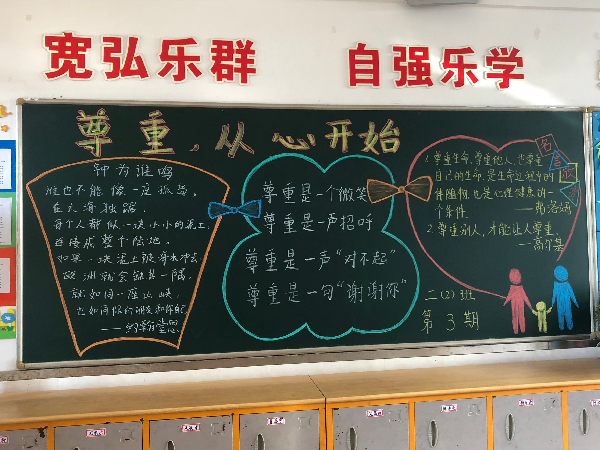 宽弘乐群
自强乐学
尊重，从心开始
钟为谁鸣
谁也不能像一座孤岛，
在大海独踞，
每个人都似一块小小的泥土，
连接成整个陆地。
如果一块泥土被海水冲去，
欧洲就会缺其一隅，
就如同一座山峡，
——约翰·堂恩
尊重是一个微笑
尊重是一声招呼
尊重是一声“对不起”
尊重是一句“谢谢你”
名言欣赏
1.尊重生命、尊重他人，也尊重
自己的生命，是生命进程中的
伴随物，也是心理健康的一
个条件。——弗洛姆
2.尊重别人，才能让人尊重。
——高尔基
二（2）班
第3期